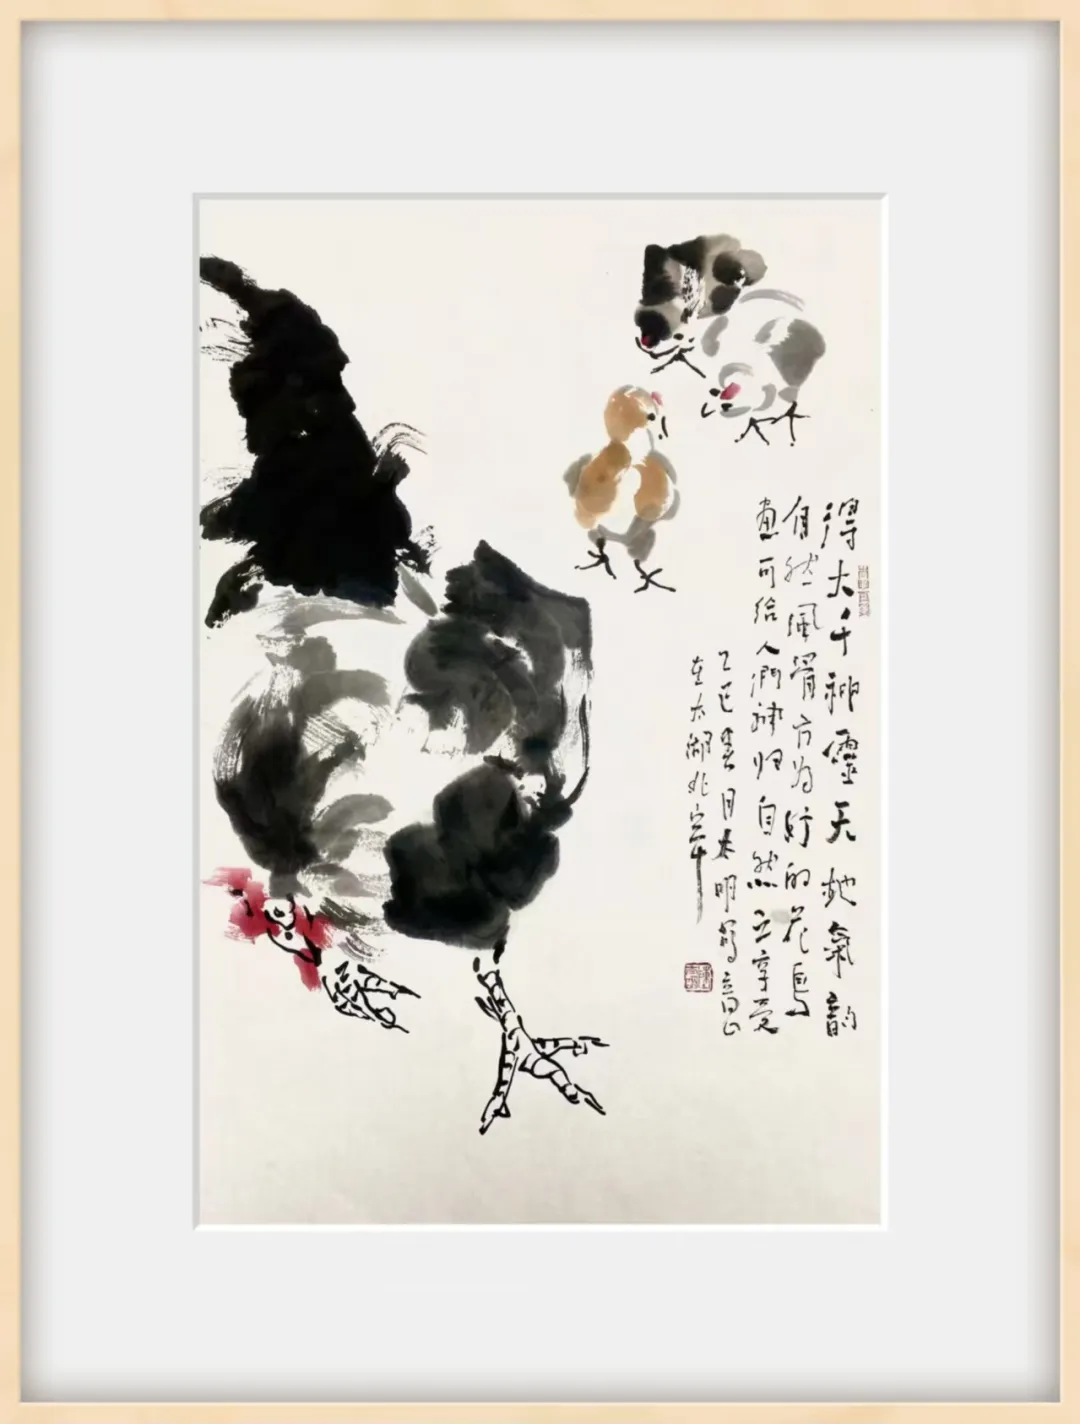 得大千神靈天地氣韵
自然風骨方为好的花鳥
畫可给人們神归自然之享受
乙巳春月 明寫
在太湖北岸